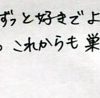 ずっと好きでよ
。これからも 巣